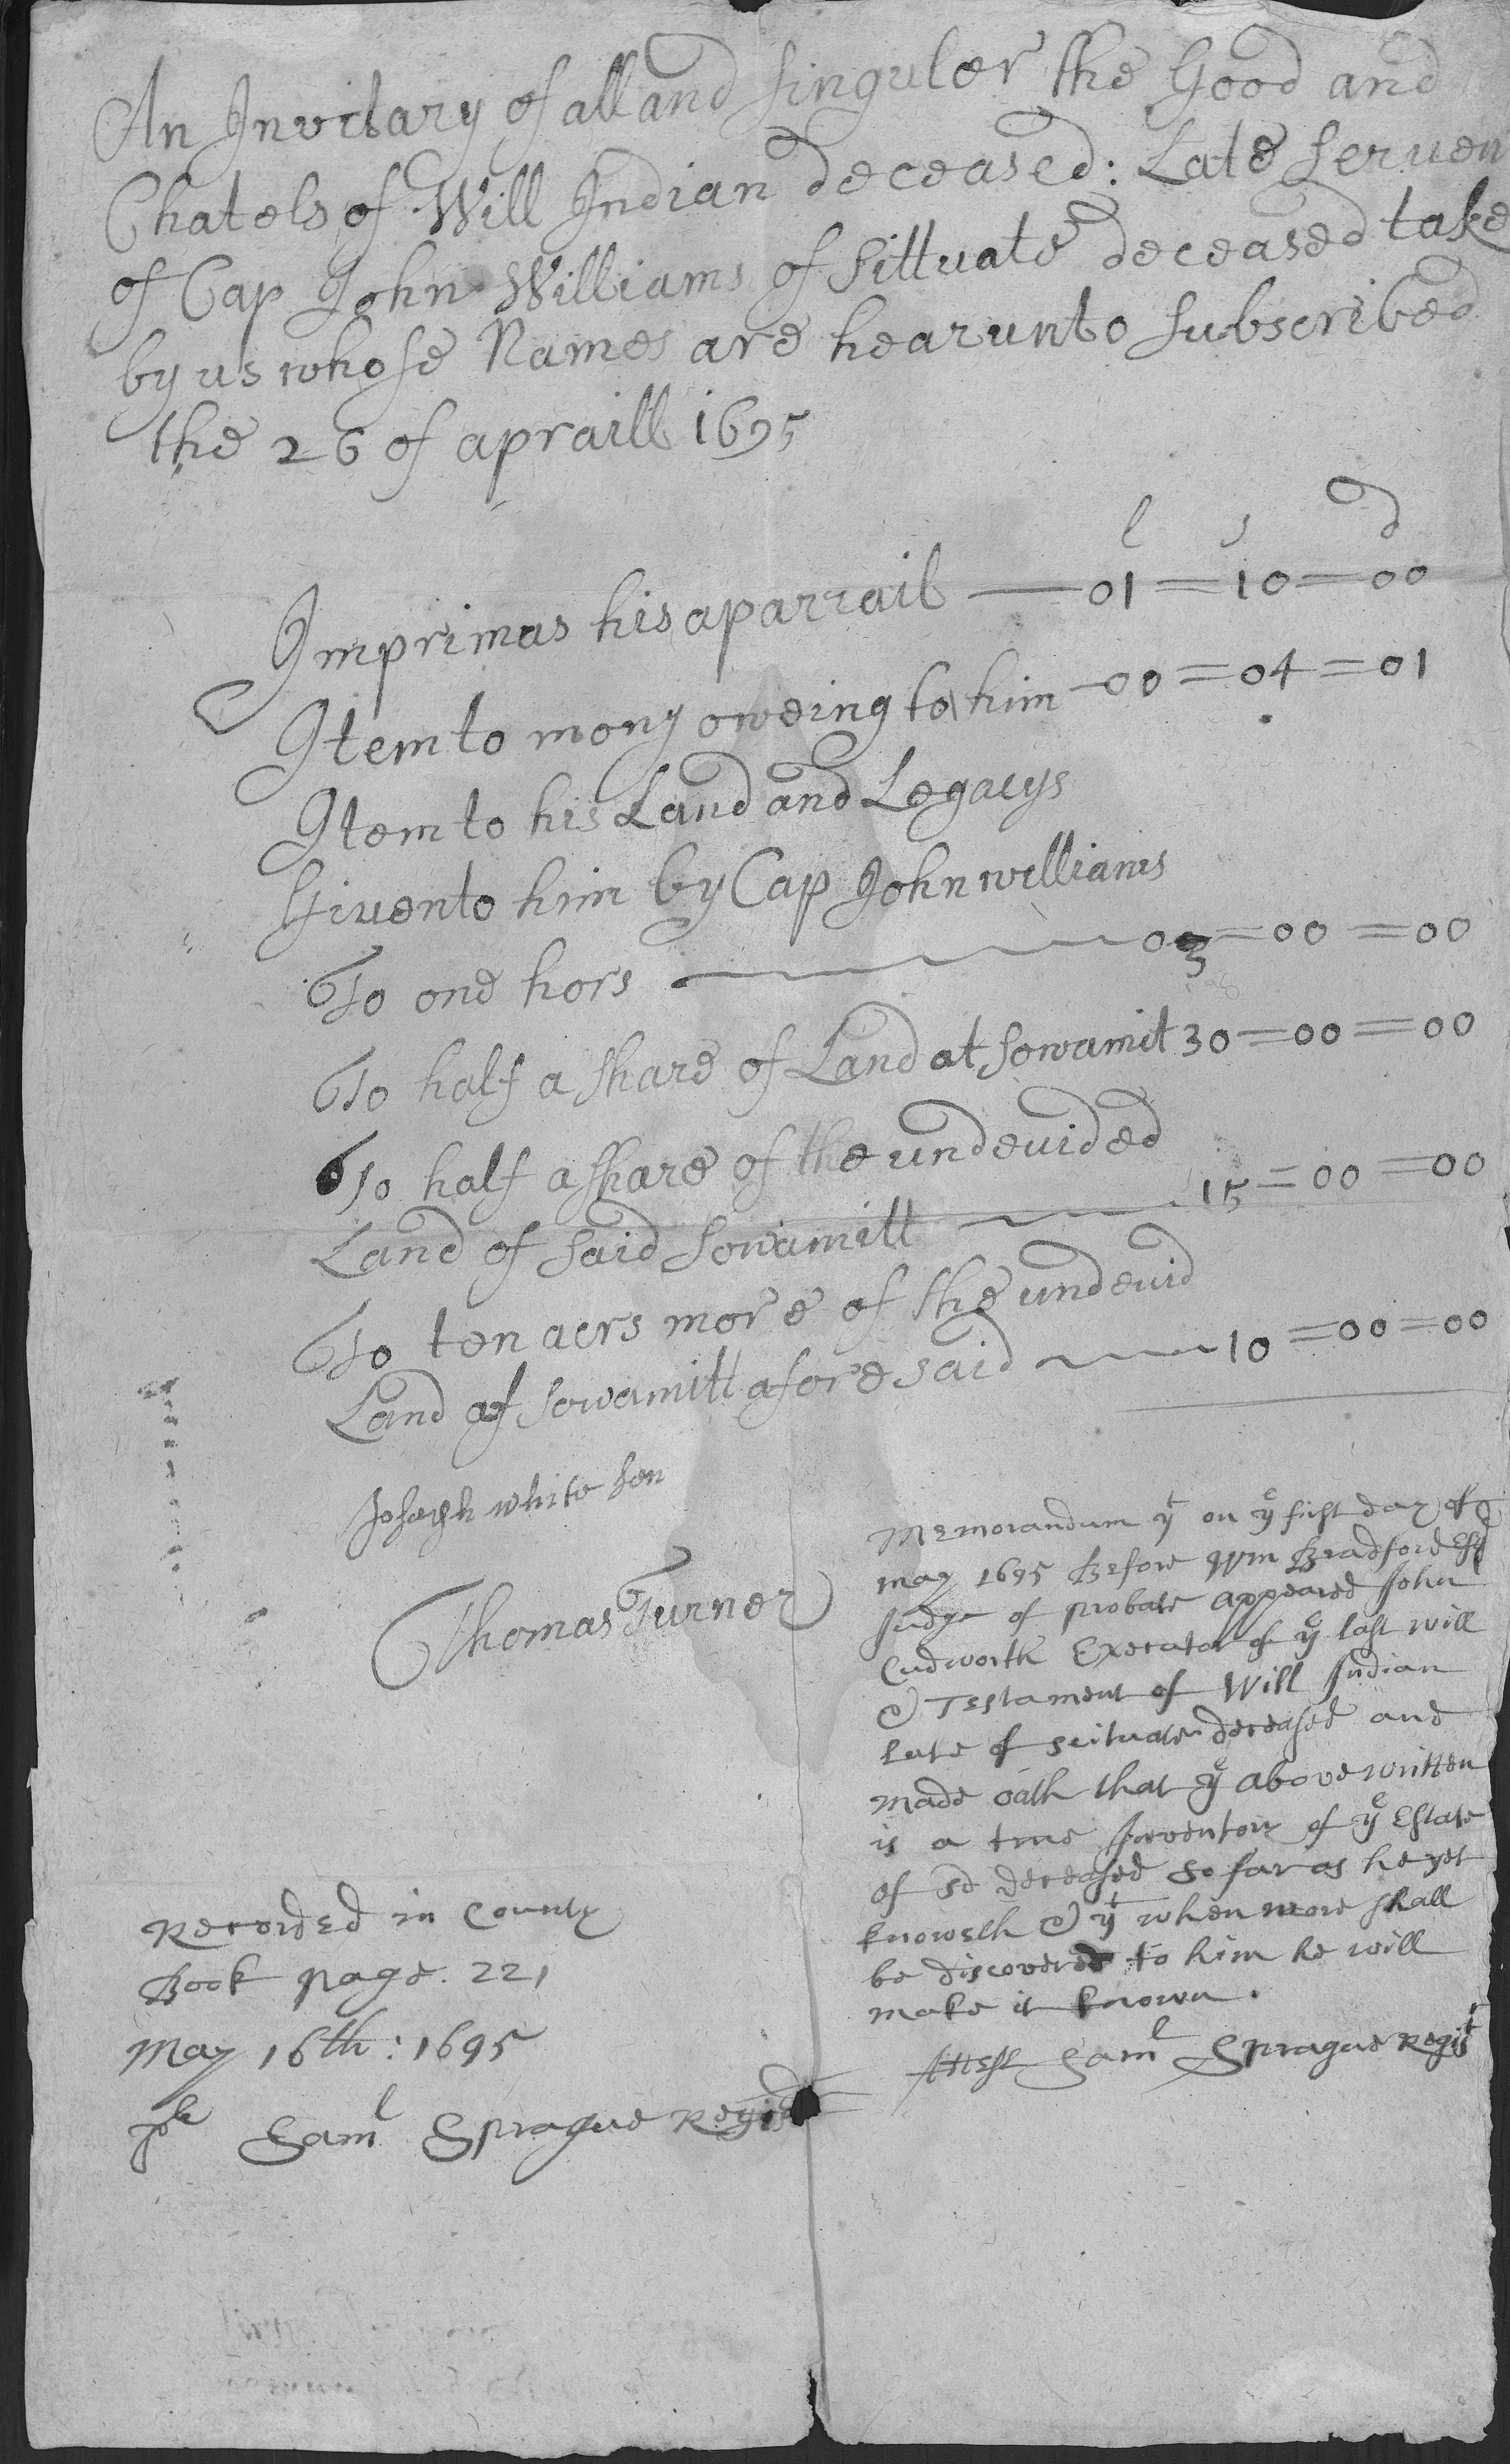 An Invitary of all and singuler the Good and
Chatels of Will Indian deceased: Late serven
of Cap John Williams of Sittuate deceased take
by us whose Names are hearunto subscribed
the 26 of apraill 1695
l s d
Imprimas his aparrail — 01 = 10 = 00
Item to mony oweing to him - 00 = 04 = 01
Item to his Land and Legacys
Given to him by Cap John williams
To one hors 03 = 00 = 00
To half a share of Land at Sowamit 30 = 00 = 00
To half a share of the undevided
Land of said Sowamitt 15 = 00 = 00
To ten acrs more of the undevid
Land at Sowamitt afore said 10 = 00 = 00
Joseph white sen
Thomas Turner
Memorandum yt on ye first day of
may 1695 Before Wm Bradford Esq
Judge of probate appeared John
Cudworth Executor of ye last will
& Testament of Will Indian
late of scituate deceased and
made oath that ye above written
is a true Inventory of ye Estate
of sd deceased so far as he yet
knoweth & yt when more shall
be discovered to him he will
make it known.
Attest Saml Sprague Regist
Recorded in County
Book page. 221
May 16th: 1695
Saml Sprague Regist